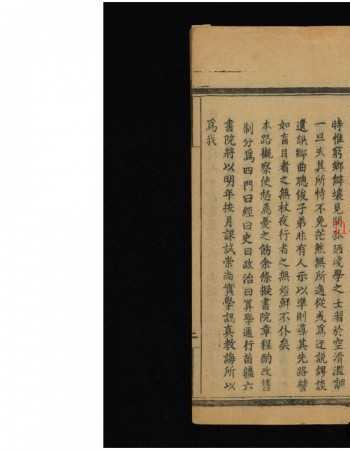 時惟窮鄉僻壤見聞孤陋淺學之士習於空滑濫調
一旦失其所恃不免茫然無所適從或爲迂説錮談
遺誤鄉曲聰俊子弟非有人示以準則導其先路譬
如盲目者之無杖夜行者之無燈鮮不仆矣
本路觀察使恁爲憂之飭余條擬書院章程酌改舊
制分爲四門曰經曰史曰政治曰算學通行首疆六
書院將以明年按月課試崇尚實學認真教誨所以
爲我